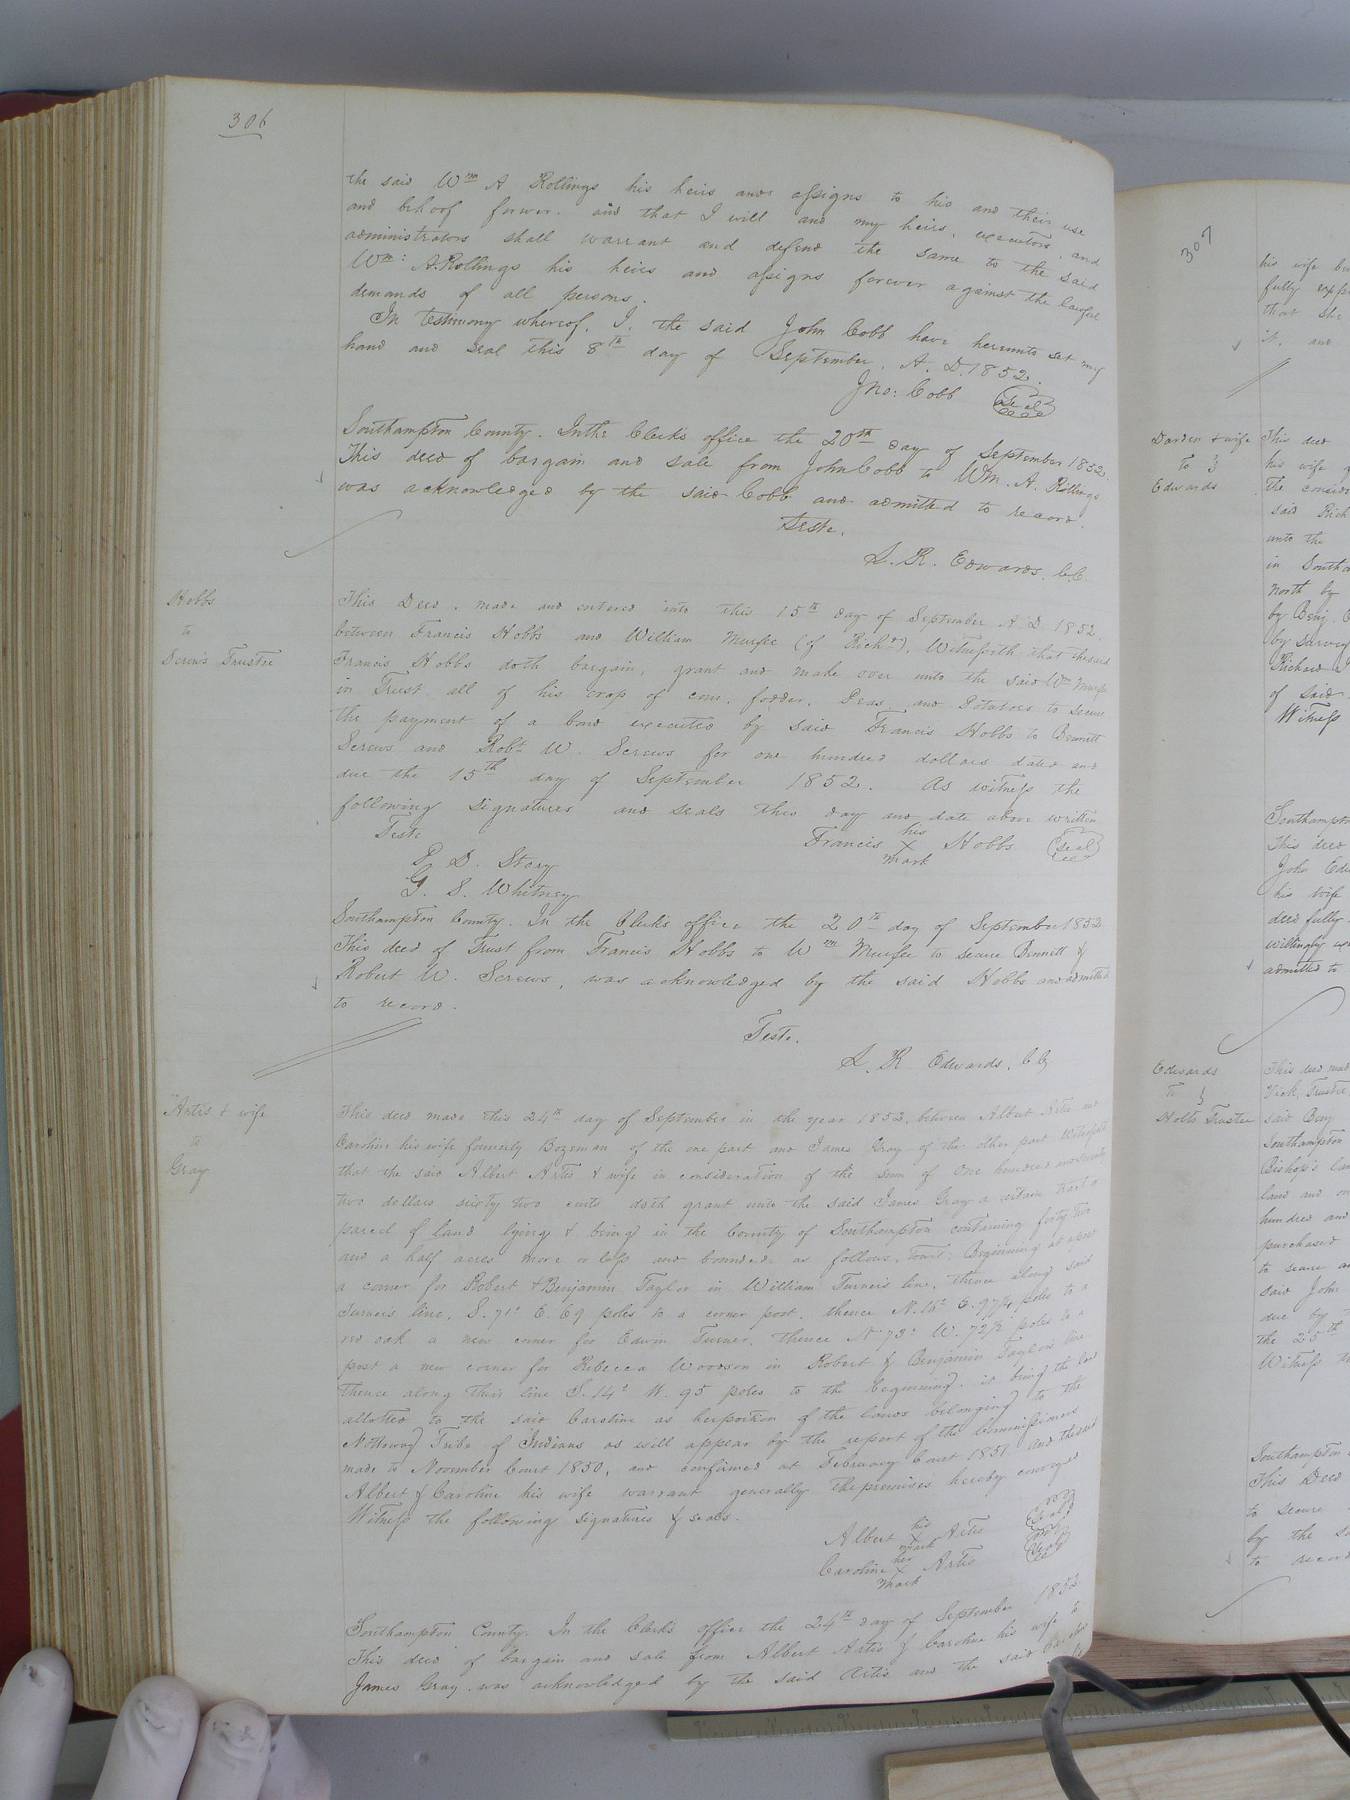 306
the said Wm A Rollings his heirs and assigns to his and their use
and behoof forever. and that I will and my heirs, executors, and
administrators shall warrant and defend the same to the said
Wm: A. Rollings his heirs and assigns forever against the lawful
demands of all persons.
In testimony whereof, I, the said John Cobb have hereunto set my
hand and seal this 8th day of September, A. D. 1852.
Jno: Cobb Seal
Southampton County. In the Clerk's office the 20th day of September 1852.
This deed of bargain and sale from John Cobb to Wm. A. Rollings
was acknowledged by the said Cobb and admitted to record.
Teste.
L. R. Edwards. C.C.
Hobbs
to
Screws Trustee
This Deed, made and entered into this 15th day of September A. D. 1852.
between Francis Hobbs and William Murfee (of Richd). Witnesseth that the said
Francis Hobbs doth bargain, grant and make over unto the said Wm Murfee
in Trust all of his crop of corn, fodder, Peas and Potatoes to secure
the payment of a bond executed by said Francis Hobbs to Bennett
Screws and Robt W. Screws for one hundred dollars dated and
due the 15th day of September 1852. As witness the
following signatures and seals this day and date above written
Teste
Francis his X mark Hobbs Seal
E. D. Story
G. S. Whitney
Southampton County. In the Clerks office the 20th day of September 1852
This deed of Trust from Francis Hobbs to Wm Murfee to secure Bennett &
Robert W. Screws, was acknowledged by the said Hobbs and admitted
to record.
Teste.
L. R Edwards. C C
Artis & wife
to
Gray
This deed made this 24th day of September in the year 1852, between Albert Artis and
Caroline his wife formerly Bozeman of the one part and James Gray of the other part Witnesseth
that the said Albert Artis & wife in consideration of the sum of One hundred and seventy
two dollars sixty two cents doth grant unto the said James Gray a certain tract or
parcel of land lying & being in the County of Southampton containing forty two
and a half acres more or less and bounded as follows, towit: Beginning at a post
a corner for Robert & Benjamin Taylor in William Turner's line, thence along said
Turners line, S. 71° E. 69 poles to a corner post, thence N. 16° E. 97¼ poles to a
red oak a new corner for Edwin Turner. thence N 73° W. 72½ poles to a
post a new corner for Rebecca Woodson in Robert & Benjamin Taylors line
thence along their line S. 14° W. 95 poles to the beginning. it being the land
allotted to the said Caroline as her portion of the lands belonging to the
Nottoway Tribe of Indians as will appear by the report of the Commissioners
made to November Court 1850, and confirmed at February Court 1851. And the said
Albert & Caroline his wife warrant generally the premises hereby conveyed
Witness the following signatures & seals.
Albert his X mark Artis Seal
Caroline her X mark Artis Seal
Southampton County. In the Clerks office the 24th day of September 1852
This deed of bargain and sale from Albert Artis & Caroline his wife to
James Gray was acknowledged by the said Artis and the said
307
his wife
fully
that she
it, and
Darden & wife
to
Edwards
This deed
his wife
the
said Rich
unto the
in South
north by
by Benj.
by
Richard
of said
Witness
Southampton
This deed
John
his wife
deed fully
willingly
admitted to
Edwards
to
Holts Trustee
This deed mad
Trustee
said Benj
Southampton
Bishop's
land and
hundred and
purchased
to secure
said John
due by
the 25th
Witness
Southampton
This Deed
to secure
by the
to record